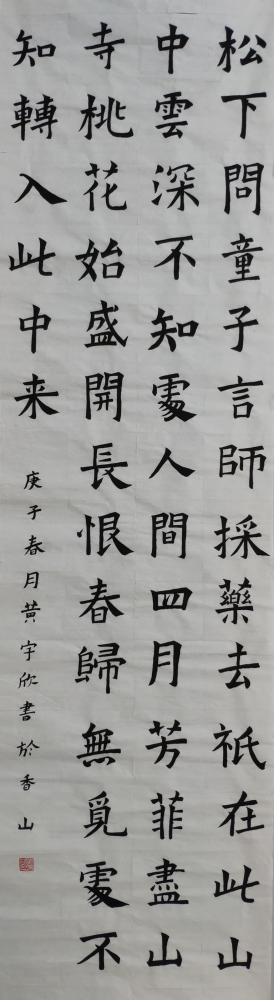 松下問童子言師採藥去祇在此山
中雲深不知處人間四月芳菲盡山
寺桃花始盛開長恨春歸無覓處不
知轉入此中来
庚子春月黄宇欣書於香山